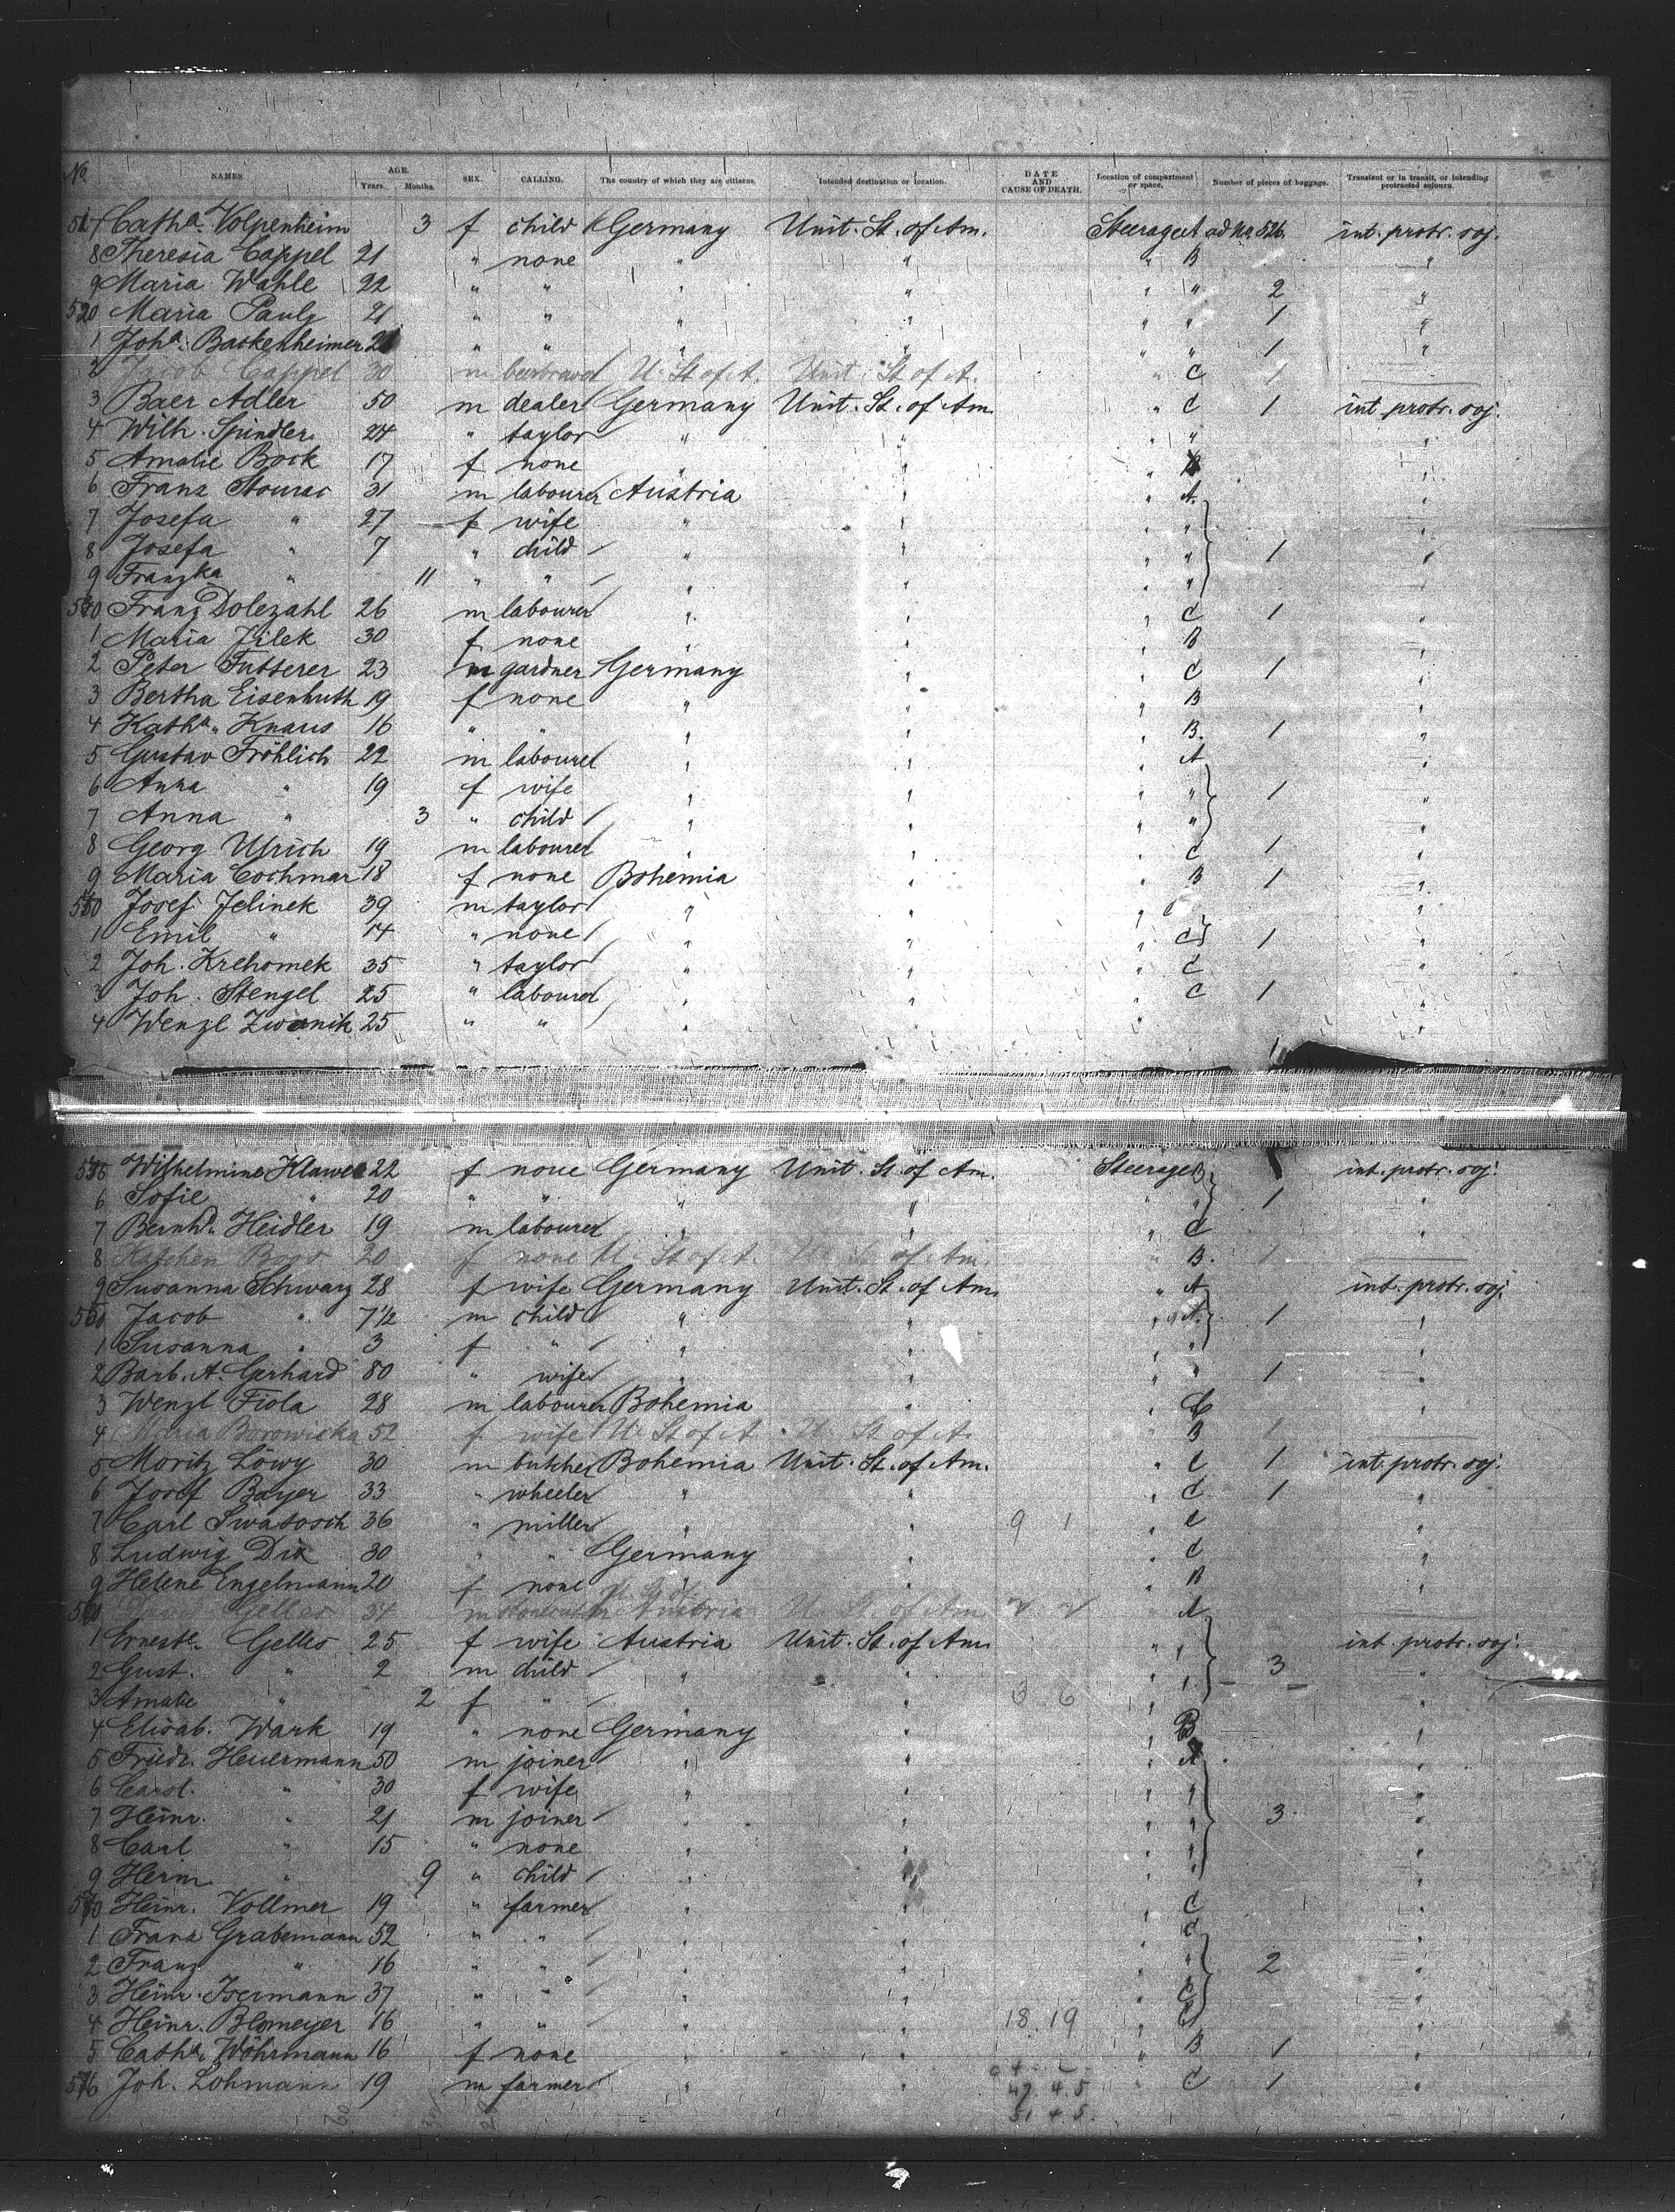 No. NAMES. AGE. Years. Months. SEX. CALLING. The country of which they are citizens. Intended destination or location. DATE AND CAUSE OF DEATH. Location of compartment or space. Number of pieces of baggage. Transient or in transit, or intending protracted sojourn.
517 Catha. Volpenheim 3 f child Germany Unit. St. of Am. Steerage A ad No. 516. int. protr. soj.
8 Theresia Cappel 21 " none " " " B "
9 Maria Wahle 22 " " " " " " 2 "
520 Maria Pauly 21 " " " " " " 1 "
1 Joha. Backenheimer 21 " " " " " " 1 "
2 Jacob Cappel 30 m U. St of A. Unit. St of A. " C 1
3 Baer Adler 50 m dealer Germany Unit. St. of Am. " C 1 int. protr. soj.
4 Wilh. Spindler 24 " taylor " " " " "
5 Amalie Bock 17 f none " " " B "
6 Franz Stourac 31 m labourer Austria " " A "
7 Josefa " 27 f wife " " " " "
8 Josefa " 7 " child " " " " 1 "
9 Franzka " 11 " " " " " " "
530 Franz Dolezahl 26 m labourer " " " C 1 "
1 Maria Jilek 30 f none " " " B "
2 Peter Futterer 23 m gardner Germany " " C 1 "
3 Bertha Eisenhuth 19 f none " " " B "
4 Katha. Knaus 16 " " " " " B. 1 "
5 Gustav Fröhlich 22 m labourer " " " A "
6 Anna " 19 f wife " " " " 1 "
7 Anna " 3 " child " " " " "
8 Georg Ulrich 19 m labourer " " " C 1 "
9 Maria Cochmar 18 f none Bohemia " " B 1 "
540 Josef Jelinek 39 m taylor " " " "
1 Emil " 14 " none " " " C 1 "
2 Joh. Krehomek 35 " taylor " " " C "
3 Joh. Stengel 25 " labourer " " " C 1 "
4 Wenzl Zwanik 25 " " " " " 1 "
545 Wilhelmine Klawer 22 f none Germany Unit. St. of Am. Steerage B 1 int. protr. soj.
6 Sofie " 20 " " " " " " 1 "
7 Bernhd. Heidler 19 m labourer " " " C "
8 Kätchen Boos 20 f none U. St of A. of Am. " B. 1
9 Susanna Schwarz 28 f wife Germany Unit. St. of Am. " A int. protr. soj.
550 Jacob " 7 1/2 m child " " " A. 1 "
1 Susanna " 3 f " " " " " "
2 Barb. A. Gerhard 80 " wife " " " " 1 "
3 Wenzl Fiola 28 m labourer Bohemia " " C "
4 Maria Borowicka 52 f wife U. St of A. U. St of A. " B 1
5 Moritz Löwy 30 m butcher Bohemia Unit. St. of Am. " C 1 int. protr. soj.
6 Josef Bayer 33 " wheeler " " " C 1 "
7 Carl Swatosch 36 " miller " " 9 1 " C "
8 Ludwig Dix 30 " " Germany " " C "
9 Helene Engelmann 20 f none " " " B "
560 Gelles 34 m Austria U. St. of Am. " A
1 Ernestе. Gelles 25 f wife Austria Unit. St. of Am. " " int. protr. soj.
2 Gust. " 2 m child " " " " 3 "
3 Amalie " 2 f " " " 3 6 " " "
4 Elisab. Wark 19 " none Germany " " B "
5 Friedr. Heuermann 50 m joiner " " " A "
6 Carol. " 30 f wife " " " " "
7 Heinr. " 21 m joiner " " " " 3 "
8 Carl " 15 " none " " " " "
9 Herm. " 9 " child " " " " "
570 Heinr. Vollmer 19 " farmer " " " C "
1 Franz Grabemann 52 " " " " " C "
2 Franz " 16 " " " " " " 2 "
3 Heinr. Isermann 37 " " " " " C "
4 Heinr. Blomeyer 16 " " " " 18. 19 " C "
5 Catha. Wöhrmann 16 f none " " " B 1 "
576 Joh. Lohmann 19 m farmer " " 47 4 5 " C 1 "
51 4 5.